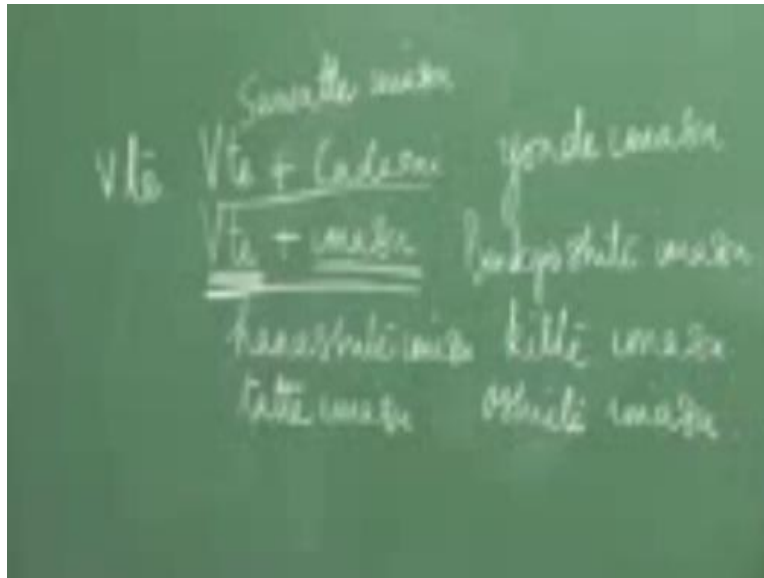 Suwatte imasu
Vte Vte + Kudasai yonde imasu
Vte + imasu benkyoshite imasu
hanashite imasu kitte imasu
tatte imasu oshiete imasu